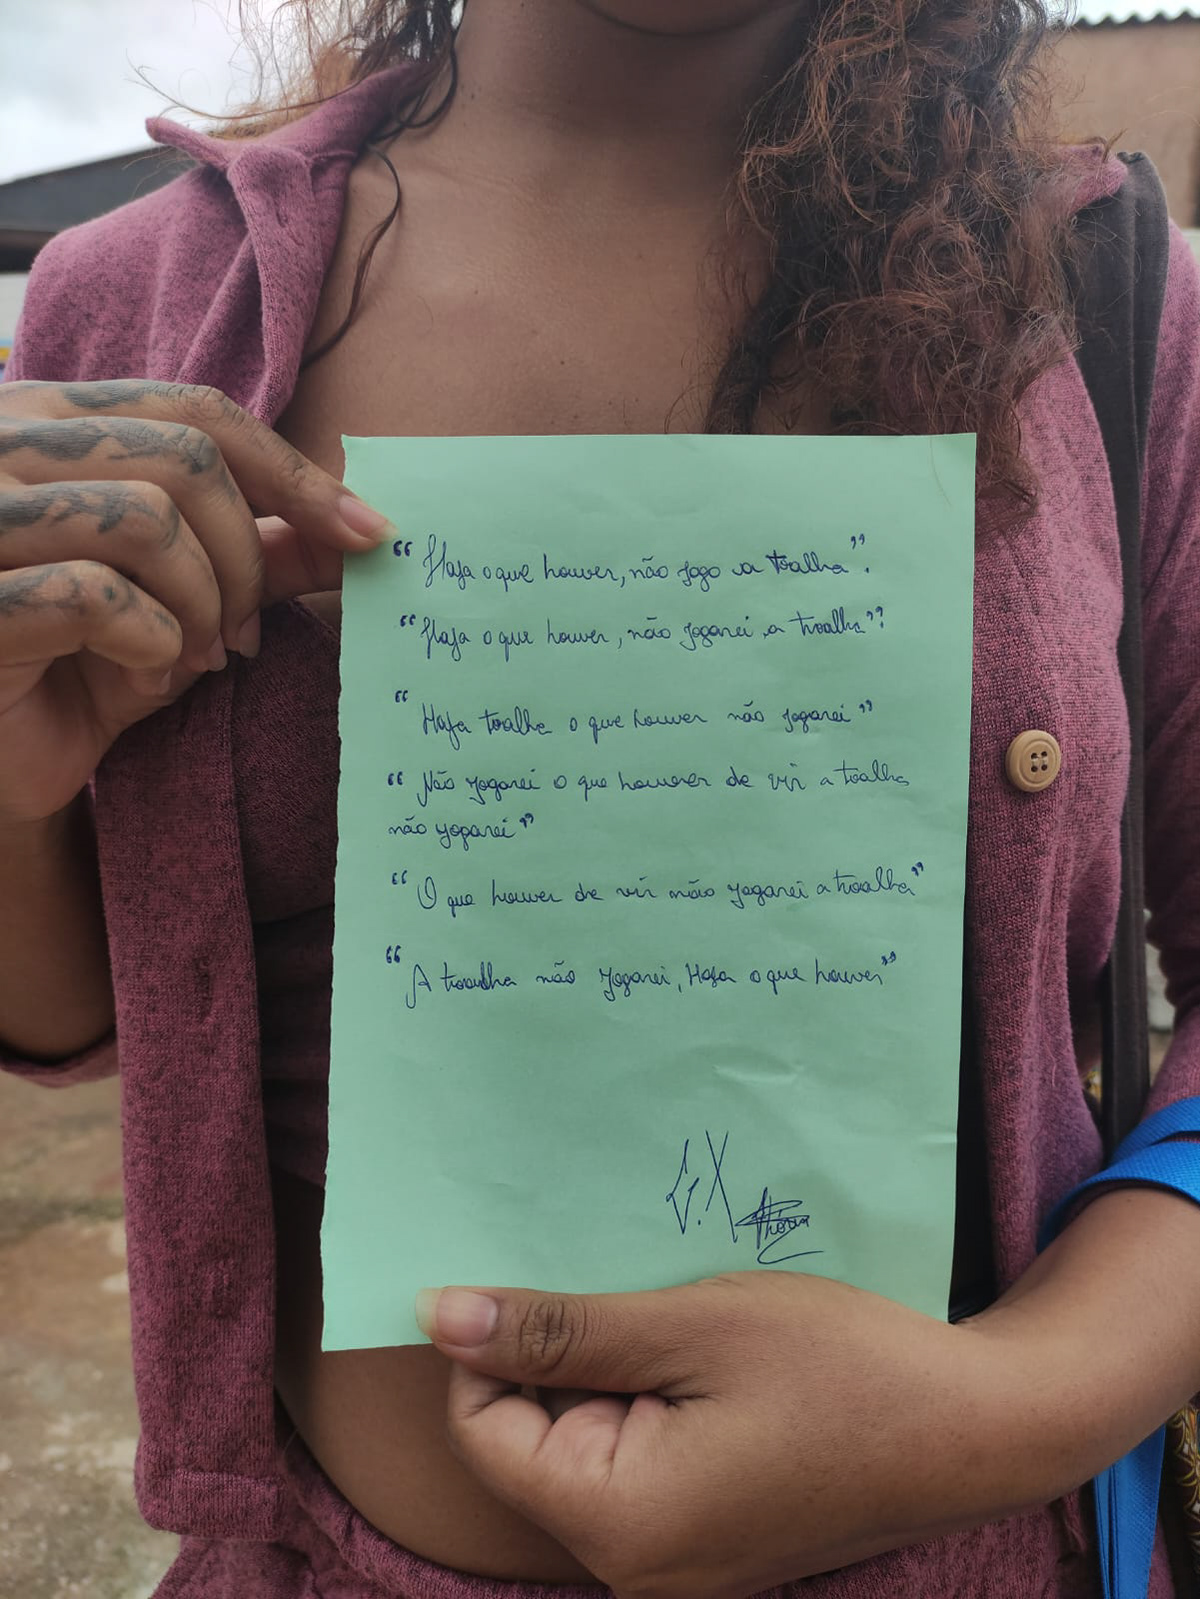 “Haja o que houver, não jogo a toalha”.
“Haja o que houver, não jogarei a toalha”.
“Haja toalha o que houver não jogarei”
“Não jogarei o que houver de vir a toalha
não jogarei”
“O que houver de vir não jogarei a toalha”
“A toalha não jogarei, Haja o que houver”
G.X